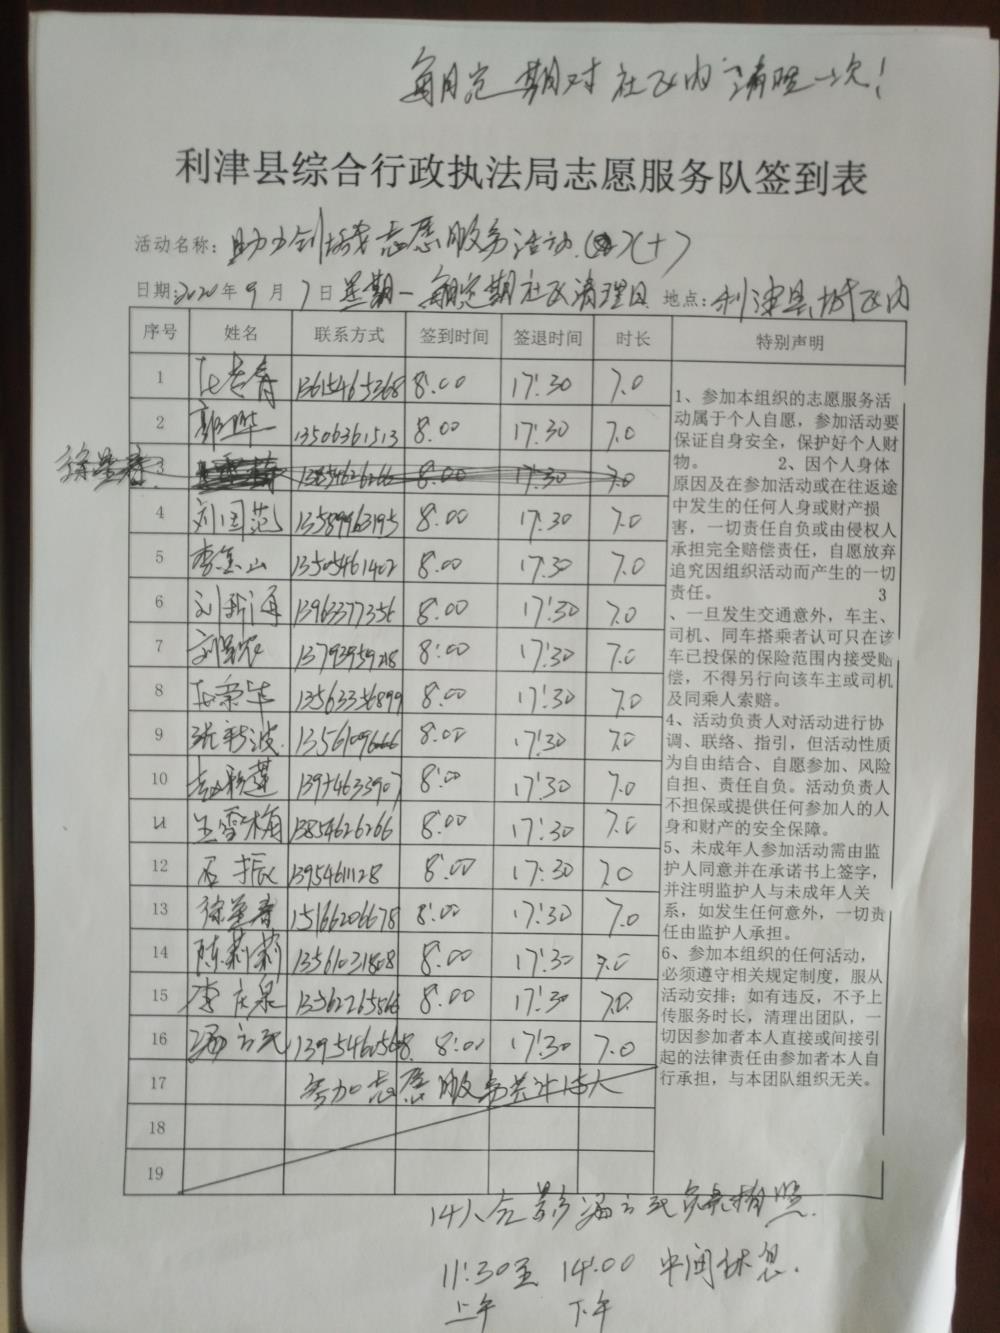 每月定期对社区内清理一次!
利津县综合行政执法局志愿服务队签到表
活动名称: 助力创城志愿服务活动.(十)
日期:2020年9月7日 星期一 每月定期社区清理日 地点:利津县城区内
序号 姓名 联系方式 签到时间 签退时间 时长 特别声明
1 13615465368 8:00 17:30 7.0
2 郭晔 13506361513 8:00 17:30 7.0
3 13854626266 8:00 17:30 7.0
4 刘国范 13589963195 8:00 17:30 7.0
5 李金山 13505461402 8:00 17:30 7.0
6 刘新海 13963377356 8:00 17:30 7.0
7 13793959218 8:00 17:30 7.0
8 13563356899 8:00 17:30 7.0
9 张新波 13561096666 8:00 17:30 7.0
10 赵彩莲 8:00 17:30 7.0
11 王雪梅 13854626266 8:00 17:30 7.0
12 石振 1395461128 8:00 17:30 7.0
13 15166206678 8:00 17:30 7.0
14 陈莉莉 8:00 17:30 7.0
15 李庆泉 8:00 17:30 7.0
16 冯立民 8:00 17:30 7.0
17 参加志愿服务共计15人
18
19
1、参加本组织的志愿服务活
动属于个人自愿,参加活动要
保证自身安全,保护好个人财
物。 2、因个人身体
原因及在参加活动或在往返途
中发生的任何人身或财产损
害,一切责任自负或由侵权人
承担完全赔偿责任,自愿放弃
追究因组织活动而产生的一切
责任。 3
、一旦发生交通意外,车主、
司机、同车搭乘者认可只在该
车已投保的保险范围内接受赔
偿,不得另行向该车主或司机
及同乘人索赔。
4、活动负责人对活动进行协
调、联络、指引,但活动性质
为自由结合、自愿参加、风险
自担、责任自负。活动负责人
不担保或提供任何参加人的人
身和财产的安全保障。
5、未成年人参加活动需由监
护人同意并在承诺书上签字,
并注明监护人与未成年人关
系,如发生任何意外,一切责
任由监护人承担。
6、参加本组织的任何活动,
必须遵守相关规定制度,服从
活动安排;如有违反,不予上
传服务时长,清理出团队,一
切因参加者本人直接或间接引
起的法律责任由参加者本人自
行承担,与本团队组织无关。
14人合影冯立民负责拍照.
11:30至14:00 中间休息.
上午 下午